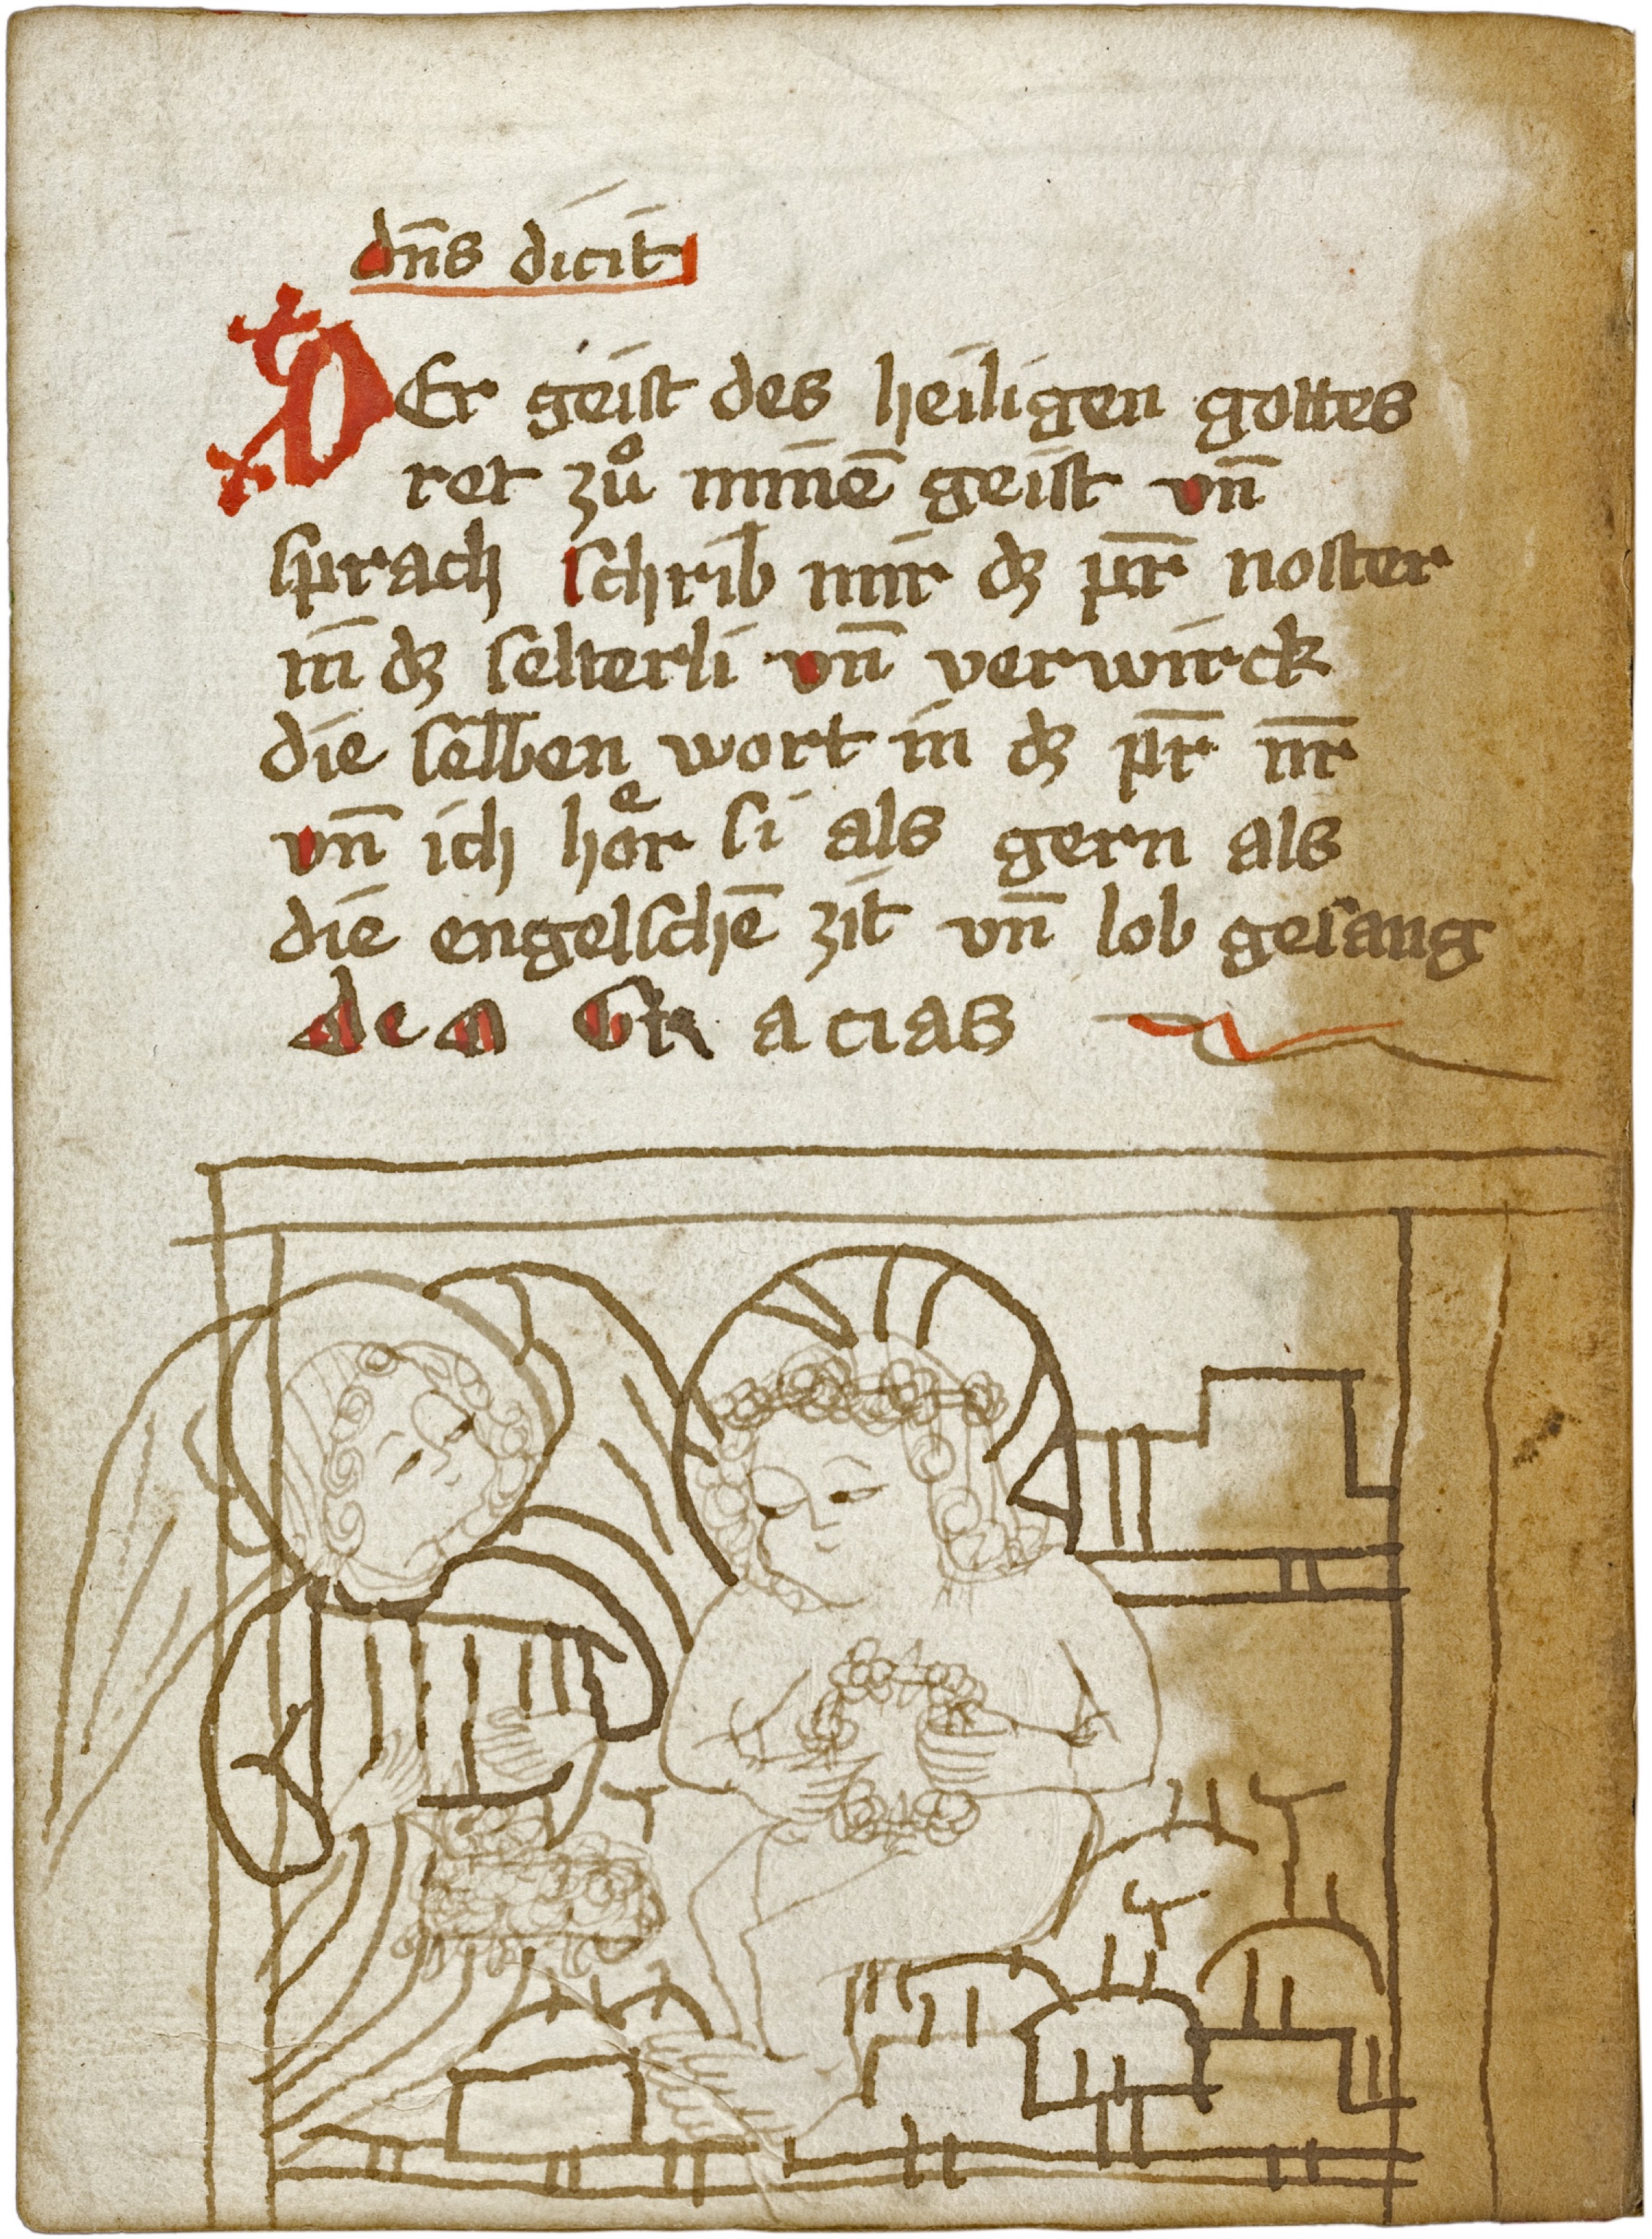 dn̄s dicit
DEr geist des heiligen gottes
ret zuͦ minē geist vn̄
sprach schrib mir dz pr̄ noster
in dz selterli vn̄ verwirck
die selben wort in dz pr̄ nr̄
vn̄ ich hoͤr si als gern als
die engelschē zit vn̄ lob gesang
deo GRacias